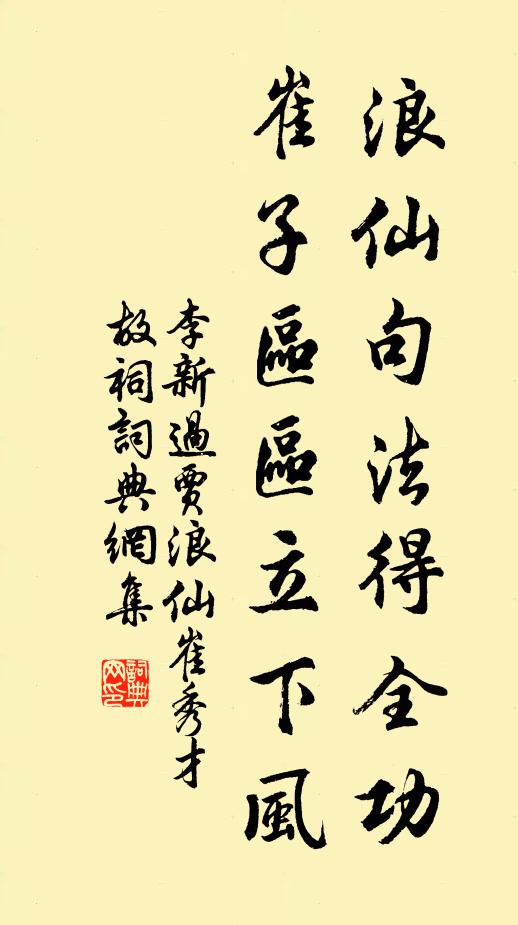 浪仙句法得全功
崔子區區立下風
李新過賈浪仙崔秀才
故祠詞典網集
詞典网印